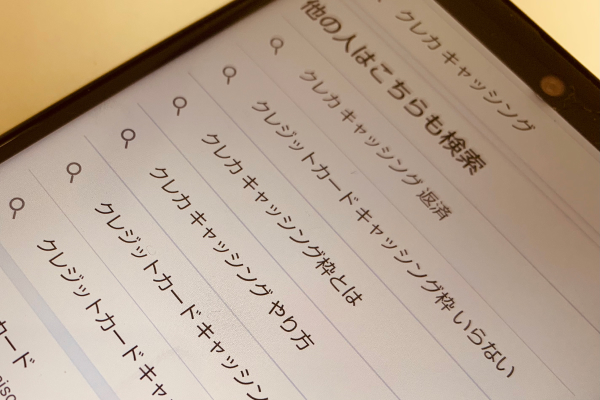 クレカ キャッシング
他の人はこちらも検索
クレカ キャッシング 返済
クレジットカード キャッシング枠 いらない
クレカ キャッシング枠とは
クレカ キャッシング やり方
クレジットカード キャッシン
クレジットカード キャ
カード